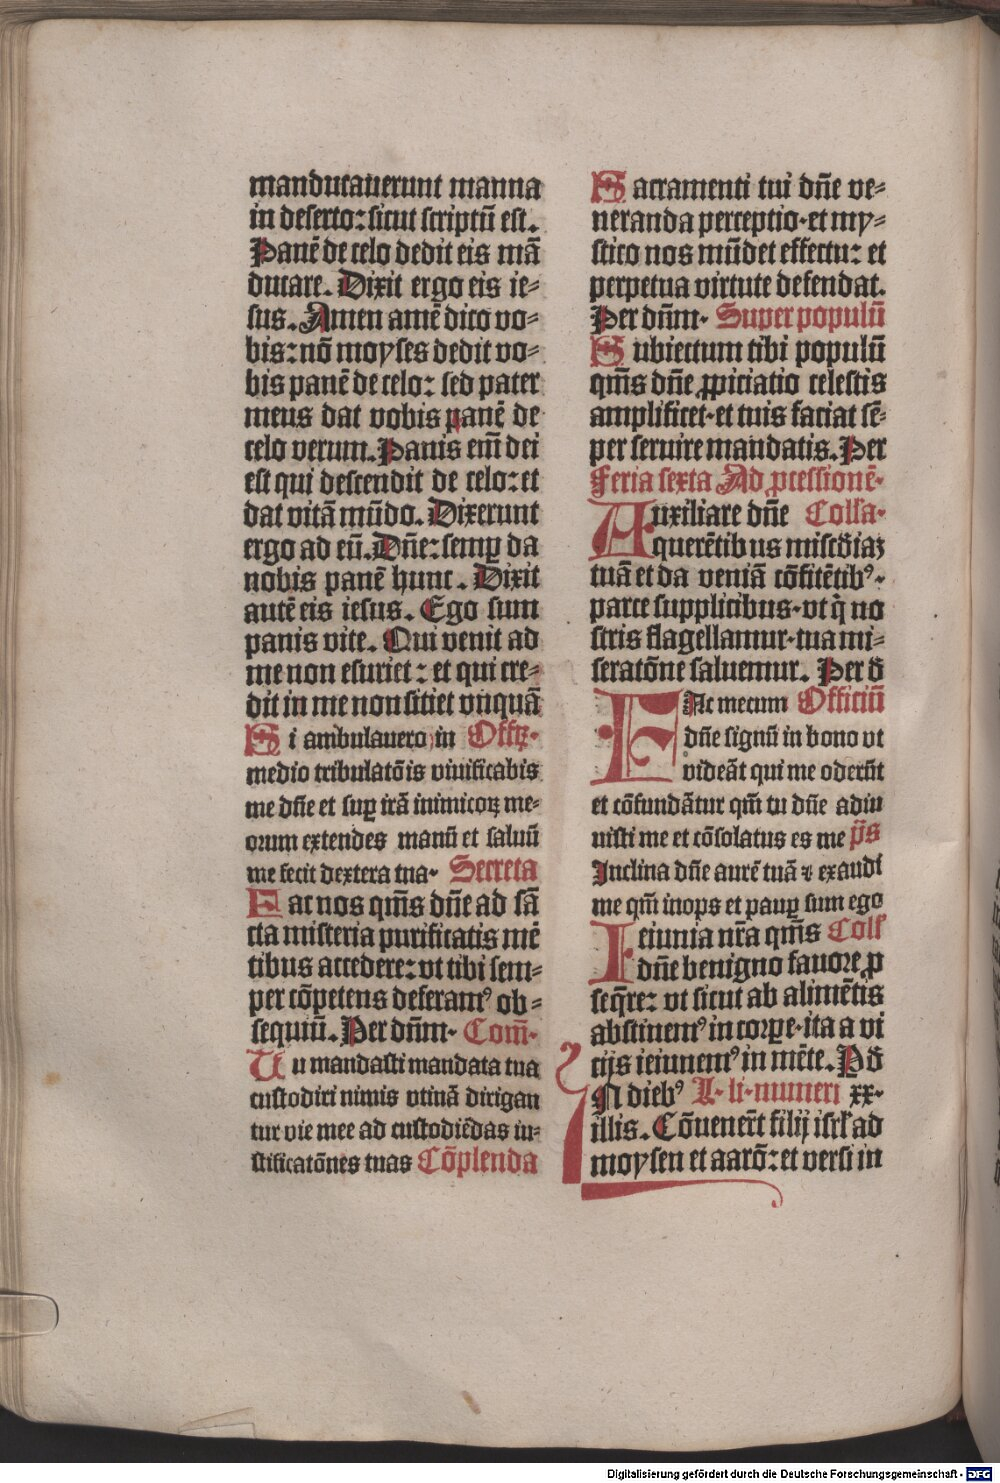 manducauerunt manna
in deserto: sicut scriptū est.
Panē de celo dedit eis mā
ducare. Dixit ergo eis ie⸗
sus. Amen amē dico vo⸗
bis: nō moyses dedit vo⸗
bis panē de celo: sed pater
meus dat vobis panē de
celo verum. Panis em̄ dei
est qui descendit de celo: et
dat vitā mūdo. Dixerunt
ergo ad eū. Dn̄e: semꝑ da
nobis panē hunc. Dixit
autē eis iesus. Ego sum
panis vite. Qui venit ad
me non esuriet: et qui cre⸗
dit in me non sitiet vnquā
Si ambulauero in Offꝝ·
medio tribulatōis viuificabis
me dn̄e et suꝑ irā inimicoꝝ me⸗
orum extendes manū et saluū
me fecit dextera tua· Secreta
Fac nos qm̄s dn̄e ad sā
cta misteria purificatis mē
tibus accedere: vt tibi sem⸗
per cōpetens deferamꝰ ob⸗
sequiū. Per dn̄m· Com̄·
Tu mandasti mandata tua
custodiri nimis vtinā dirigan
tur vie mee ad custodiēdas iu⸗
stificatōnes tuas Cōplenda
Sacramenti tui dn̄e ve⸗
neranda perceptio·et my⸗
stico nos mūdet effectu: et
perpetua virtute defendat.
Per dn̄m· Super populū
Subiectum tibi populū
qm̄s dn̄e ꝓpiciatio celestis
amplificet·et tuis faciat sē⸗
per seruire mandatis. Per
Feria sexta Ad ꝓcessionē·
Auxiliare dn̄e Colĺa·
querētibus misc̄diaꝫ
tuā et da veniā cōfitētibꝰ·
parce supplicibus·vt q̄ no
stris flagellamur·tua mi⸗
seratōne saluemur. Per d̄
FAc mecum Officiū
dn̄e signū in bono vt
videāt qui me oderūt
et cōfundātur qm̄ tu dn̄e adiu
uisti me et cōsolatus es me p̄s
Inclina dn̄e aurē tuā ⁊ exaudi
me qm̄ inops et pauꝑ sum ego
Ieiunia nr̄a qm̄s Colĺ
dn̄e benigno fauore ꝓ
seq̄re: vt sicut ab alimētis
abstinemꝰ in corpe·ita a vi
cijs ieiunemꝰ in mēte. P d̄
IN diebꝰ L· li·numeri xx·
illis. Cōuener̄t filij isrĺ ad
moysen et aarō: et versi in
Digitalisierung gefördert durch die Deutsche Forschungsgemeinschaft - DFG